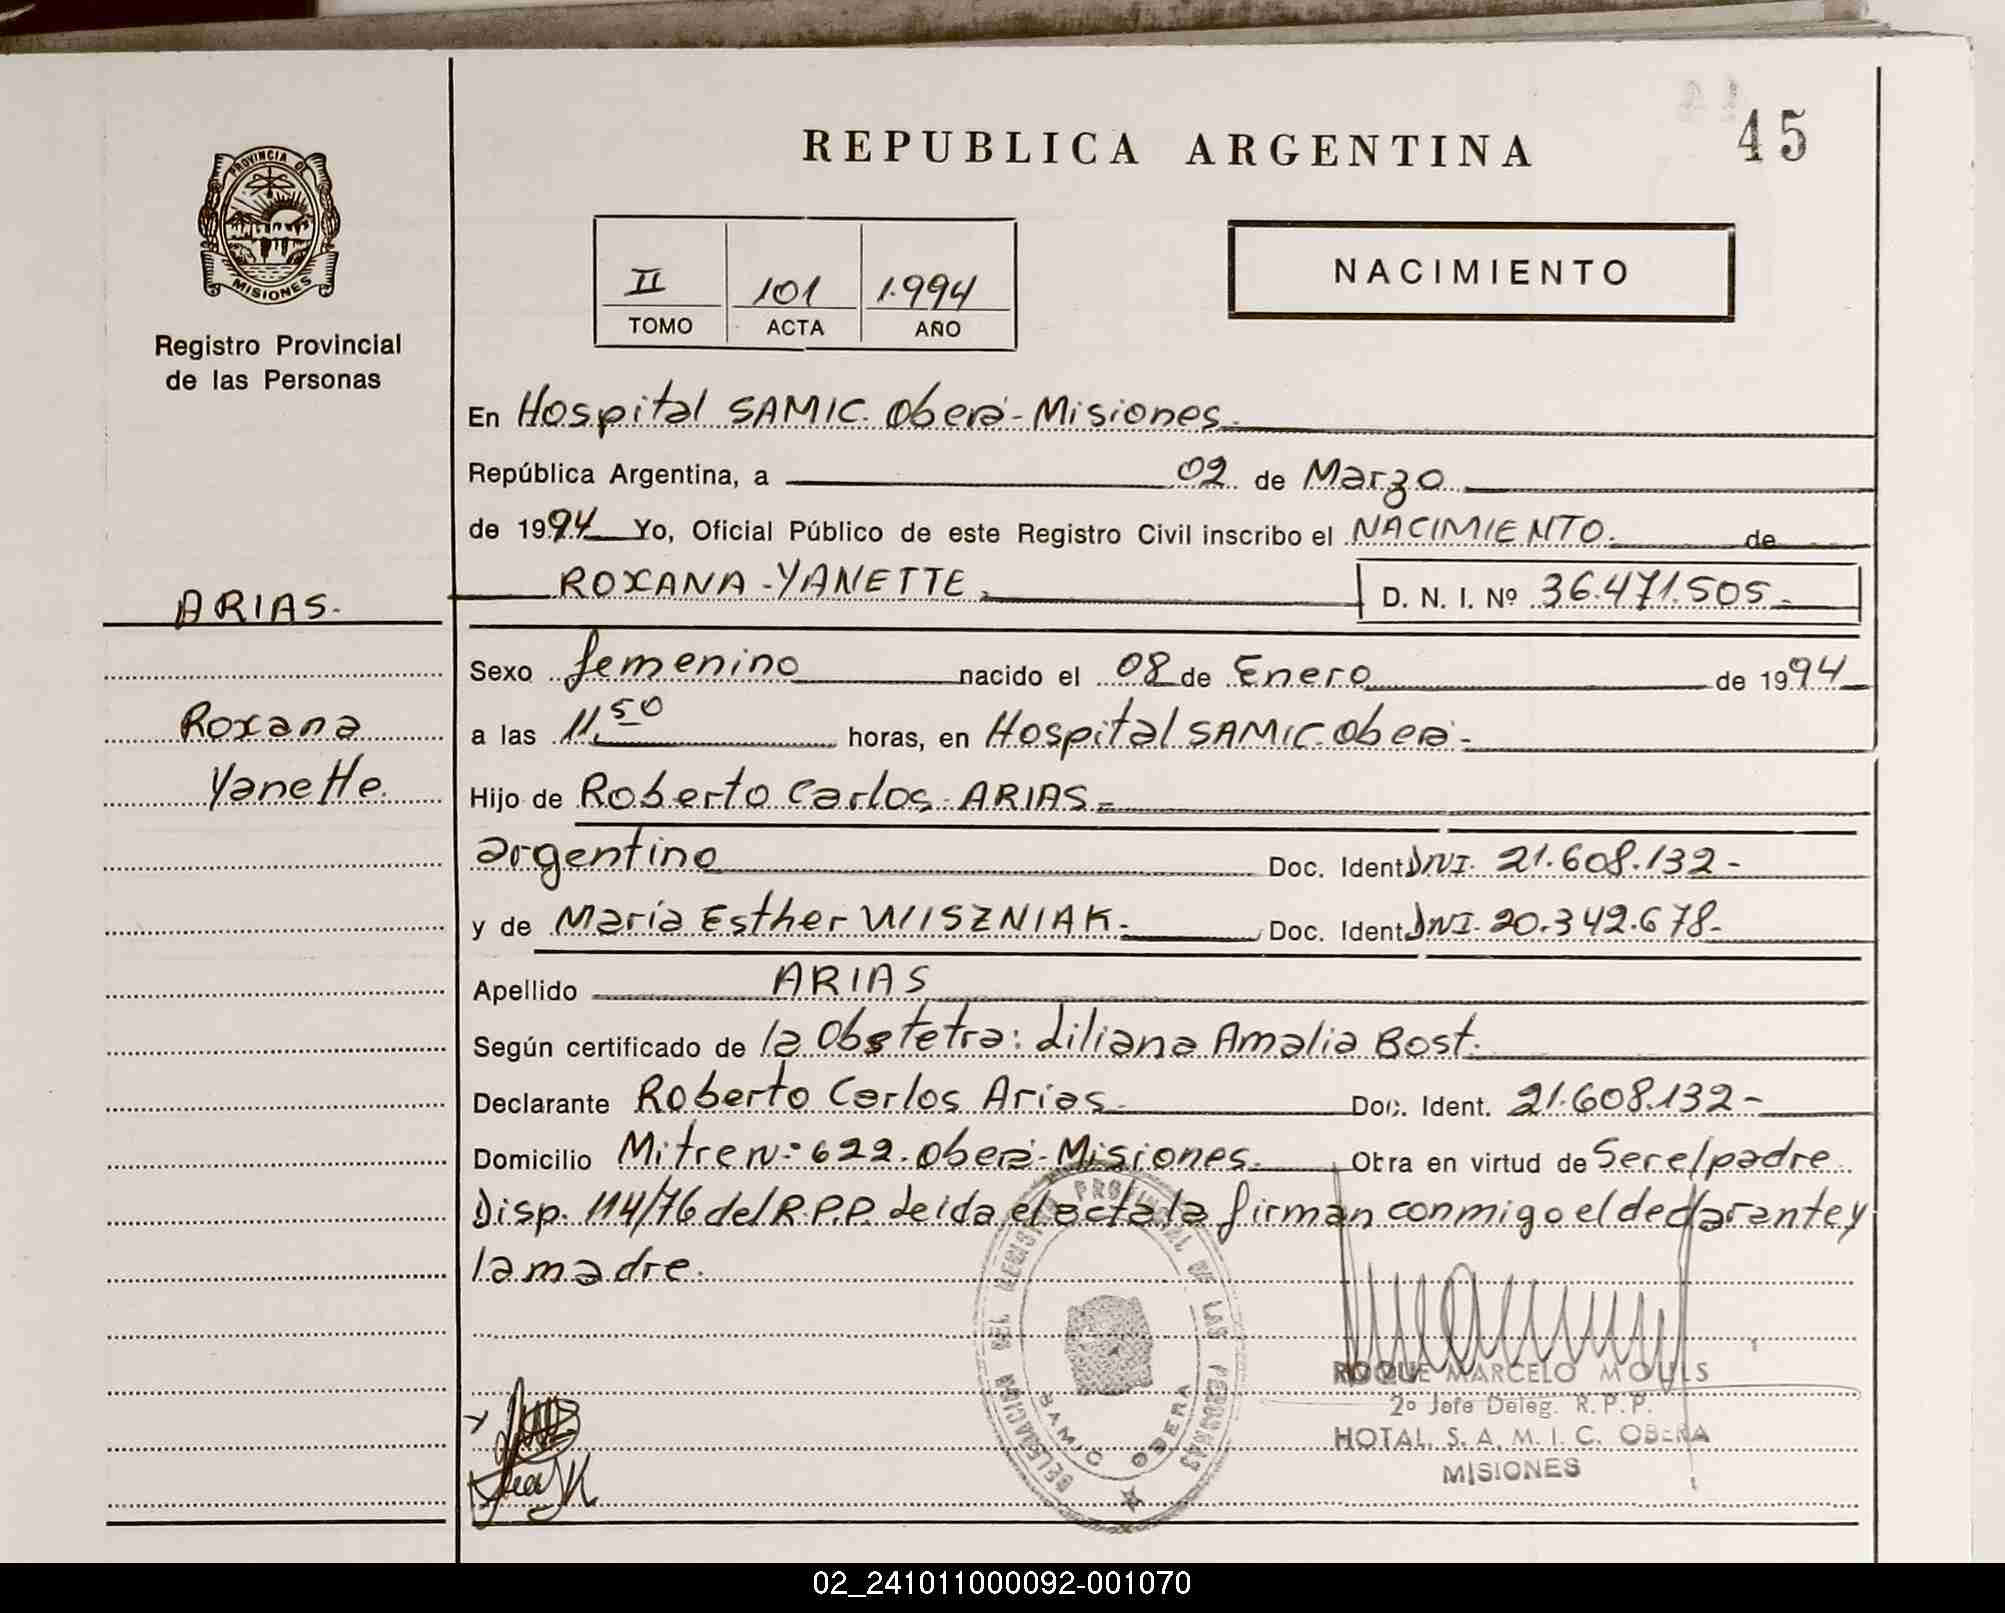 45
REPUBLICA ARGENTINA
PROVINCIA DE
MISIONES
Registro Provincial
de las Personas
II 101 1.994
TOMO ACTA AÑO
NACIMIENTO
En Hospital SAMIC. Oberá - Misiones.
República Argentina, a 02 de Marzo
de 1994 Yo, Oficial Público de este Registro Civil inscribo el NACIMIENTO. de
ARIAS.
ROXANA - YANETTE. D. N. I. Nº 36.471.505.-
Sexo femenino nacido el 08 de Enero de 1994
Roxana
Yanette.
a las 11,50 horas, en Hospital SAMIC. Oberá.-
Hijo de Roberto Carlos ARIAS.=
argentino Doc. Ident. DNI. 21.608.132-
y de María Esther WISZNIAK.- Doc. Ident. DNI. 20.342.678-
Apellido ARIAS
Según certificado de la Obstetra: Liliana Amalia Bost.
Declarante Roberto Carlos Arias. Doc. Ident. 21.608.132-
Domicilio Mitre Nº 622. Oberá - Misiones. Obra en virtud de Ser el padre
Disp. 114/76 del R.P.P. Leida el acta la firman conmigo el declarante y
la madre.
DELEGACION DEL REGISTRO PROVINCIAL DE LAS PERSONAS
SAMIC OBERA
ROQUE MARCELO MOULS
2º Jefe Deleg. R. P. P.
HOTAL. S. A. M. I. C. OBERA
MISIONES
02_241011000092-001070